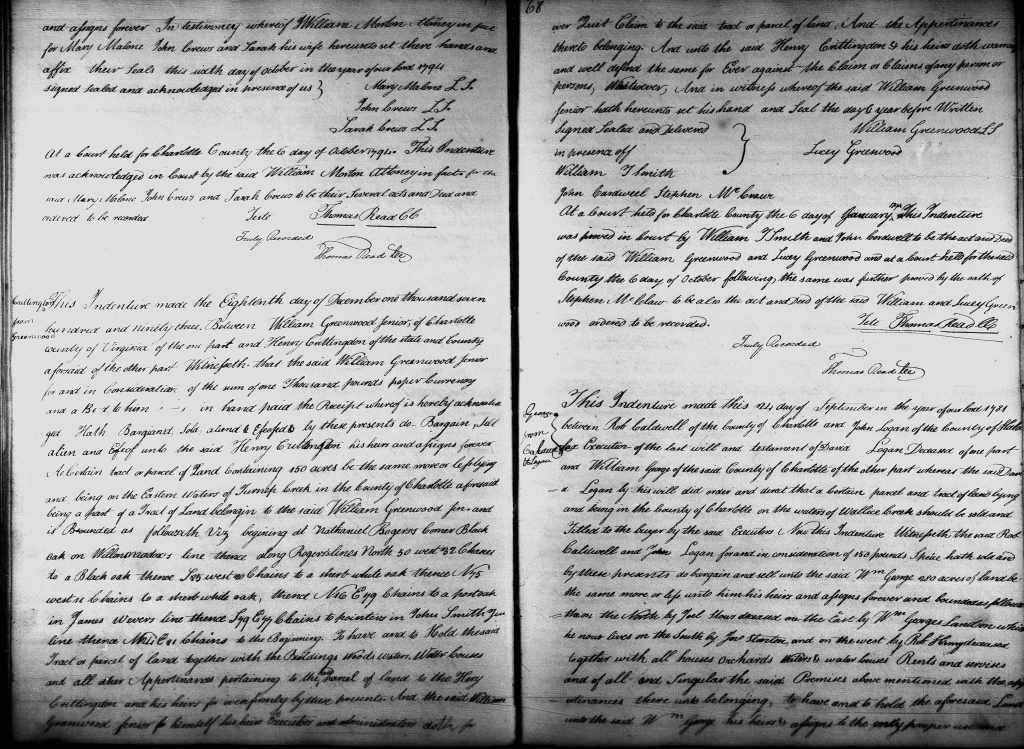 and assigns forever In testimony whereof I William Morton Attorney in fact
for Mary Malone John Crews and Sarah his wife hereunto set there hands and
affix their Seals this sixth day of October in the year of our lord 1794
signed sealed and acknowledged in presence of us } Mary Malone L.S.
John Crews L.S.
Sarah Crews L.S.
At a Court held for Charlotte County the 6 day of October 1794 This Indenture
was acknowledged in Court by the said William Morton Attorney in facto for the
said Mary Malone John Crews and Sarah Crews to be their Several acts and Deed and
ordered to be recorded Teste Thomas Read Clk
Truly Recorded
Thomas Read
Crittington
from
Greenwood
This Indenture made the Eighteenth day of December one thousand seven
hundred and ninety three. Between William Greenwood Senior, of Charlotte
County of Virginia of the one part and Henry Crittingdon of the state and County
aforesaid of the other part Witnesseth that the said William Greenwood Senior
for and in Consideration of the sum of one Thousand pounds paper Currency
and a to him in hand paid the Receipt whereof is hereby acknowled
ged Hath Bargained, Sold, aliend & Efeofed & by these presents do Bargain, Sell
alien and Efeof unto the said Henry Crittington his heirs and assigns forever
A Certain tract or parcel of Land Containing 150 acres be the same more or less lying
and being on the Eastern Waters of Turnip Creek in the County of Charlotte aforesaid
being a part of a Tract of Land belongin to the said William Greenwood Sen. and
is Bounded as followeth Viz begining at Nathaniel Rogers Corner Black
oak on line thence along Rogers lines North 50 west 32 Chanes
to a Black oak thence S85 west Chains to a short white oak thence N75
west 12 Chains to a short white oak, thence N16 E 49 Chains to a post oak
in James Wevers line thence Chains to pointers in John Smith
line thence Chains to the Beginning. To have and to Hold the said
Tract or parcel of land together with the Buildings Woods Waters, Water Courses
and all other Appertinances pertaining to the said Parcel of land to the Henry
Crittingdon and his heirs for ever firmly by these presents. And the said William
Greenwood Senior for himself his heirs Executors and administrators doth for
68
ever Quit Claim to the said tract or parcel of land, And the Appertinances
thereto belonging. And unto the said Henry Crittingdon & his heirs doth warrant
and well defend the same for Ever against the Claim or Claims of any person or
persons, Whatsoever, And in witness whereof the said William Greenwood
Senior hath hereunto set his hand and Seal the day & year before Written
Signed Sealed and Delivered } William Greenwood LS
in presence off Lucy Greenwood
William T Smith
John Cardwell Stephen McCraw
At a Court held for Charlotte County the 6 day of January, This Indenture
was proved in Court by William T Smith and John Cardwell to be the act and Deed
of the said William Greenwood and Lucy Greenwood and at a Court held for the said
County the 6 day of October following, the same was further proved by the oath of
Stephen to be also the act and Deed of the said William and Lucy Green
wood ordered to be recorded.
Test Thomas Read Clk
Truly Recorded
Thomas Read
George
from
Caldwell
& Logan
This Indenture made this 24 day of September in the year of our lord 1781
between Rob Caldwell of the County of Charlotte and John Logan of the County of
Executors of the last will and testament of David Logan Deceased of one part
and William George of the said County of Charlotte of the other part whereas the said Davi
d Logan by his will did order and direct that a Certain parcel and tract of land lying
and being in the County of Charlotte on the waters of Wallace Creek should be sold and
Titled to the buyer by the said Executors Now this Indenture Witnesseth the said Rob
Caldwell and John Logan for and in consideration of 150 pounds Specie hath sold and
by these presents do bargain and sell unto the said Wm George 250 acres of land be
the same more or less unto him his heirs and assigns forever and bounded as follows
thum the North by Joel How deceased on the East by Wm Georges Land on which
he now lives on the South by and on the west by Rob deceased
together with all houses orchards Waters & water Courses Rents and services
and of all and Singular the said Premises above mentioned with the appu
rtinances there unto belonging, to have and to hold the aforesaid Land
unto the said Wm George his heirs & assigns to the only proper use and